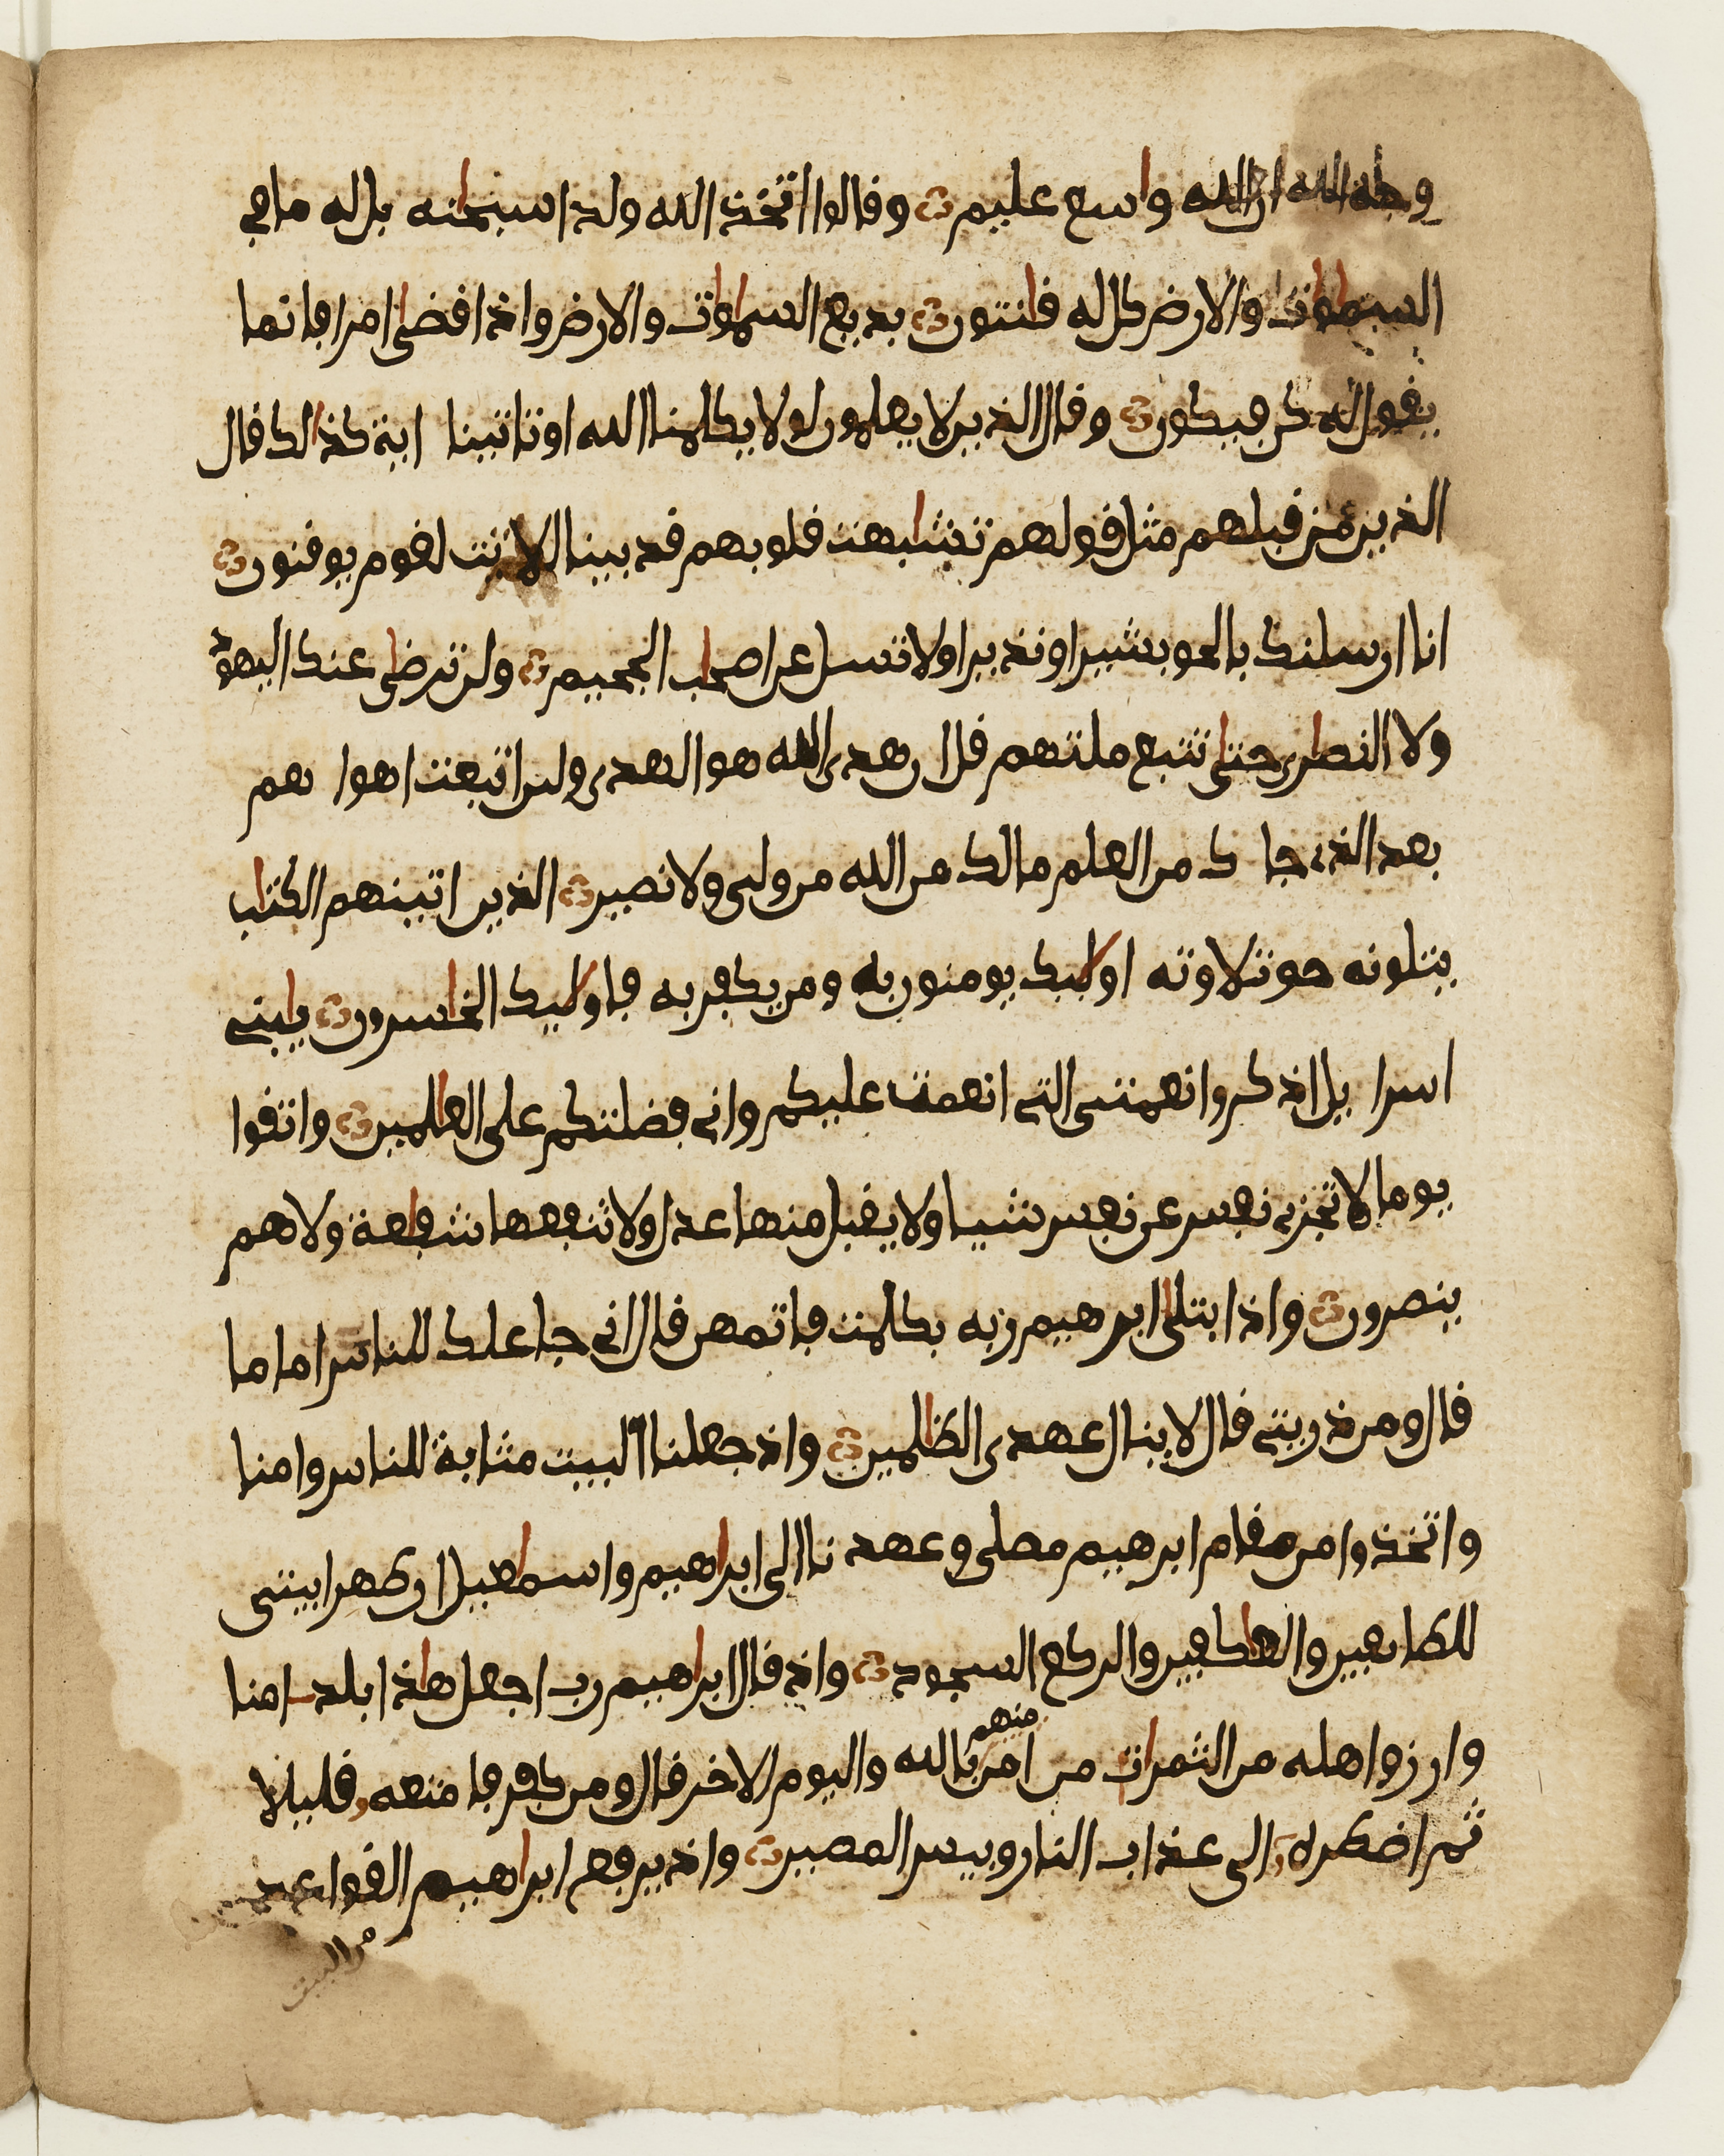 وجه الله ان الله واسع عليم وقالوا اتخذ الله ولدا سبحنه بل له ما في
السموات والارض كل له قانتون بديع السموات والارض واذا قضى امرا فانما
يقول له كن فيكون وقال الذين لا يعلمون لولا يكلمنا الله او تاتينا اية كذالك قال
الذين من قبلهم مثل قولهم تشابهت قلوبهم قد بينا الايت لقوم يوقنون
انا ارسلنك بالحق بشيرا ونذيرا ولا تسل عن اصحاب الجحيم ولن ترضى عنك اليهود
ولا النصارى حتى تتبع ملتهم قل ان هدى الله هو الهدى ولين اتبعت اهوا هم
بعد الذي جا ك من العلم ما لك من الله من ولي ولا نصير الذين اتينهم الكتاب
يتلونه حق تلاوته اوليك يومنون به ومن يكفر به فاوليك الخاسرون يابني
اسرا يل اذكروا نعمتي التي انعمت عليكم واني فضلتكم على العالمين واتقوا
يوما لا تجزي نفس عن نفس شيا ولا يقبل منها عدل ولا تنفعها شفاعة ولا هم
ينصرون واذ ابتلى ابرهيم ربه بكلمت فاتمهن قال اني جاعلك للناس اماما
قال ومن ذريتي قال لا ينال عهدي الظالمين واذ جعلنا البيت مثابة للناس وامنا
واتخذوا من مقام ابرهيم مصلى وعهد نا الى ابراهيم واسماعيل ان طهرا بيتي
للطايفين والعاكفين والركع السجود واذ قال ابراهيم رب اجعل هاذا بلدا امنا
وارزق اهله من الثمرات من امن منهم بالله واليوم الاخر قال ومن كفر فا متعه قليلا
ثم اضطره الى عذاب النار وبيس المصير واذ يرفع ابراهيم القواعد
من البيت